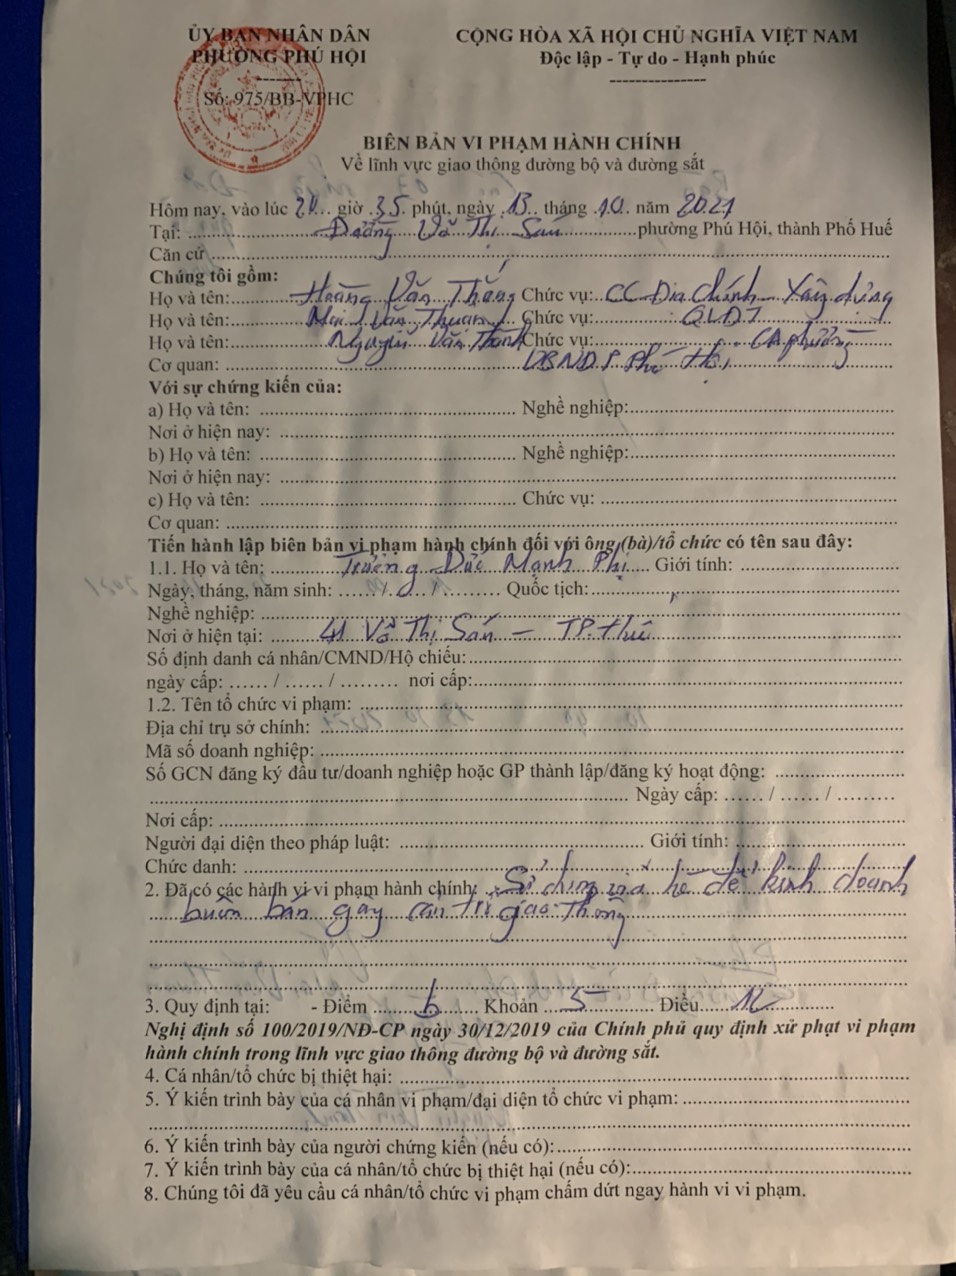 ỦY BAN NHÂN DÂN
PHƯỜNG PHÚ HỘI
Số: 975/BB-VPHC
CỘNG HÒA XÃ HỘI CHỦ NGHĨA VIỆT NAM
Độc lập - Tự do - Hạnh phúc
BIÊN BẢN VI PHẠM HÀNH CHÍNH
Về lĩnh vực giao thông đường bộ và đường sắt
Hôm nay, vào lúc giờ 35 phút, ngày 13 tháng 10 năm 2021
Tại: Đường Võ Thị Sáu phường Phú Hội, thành Phố Huế
Căn cứ
Chúng tôi gồm:
Họ và tên: Hoàng Văn Thắng Chức vụ: CC Địa Chính Xây dựng
Họ và tên: Mai Văn Chức vụ: QLĐT
Họ và tên: Nguyễn Văn Chức vụ: CA phường
Cơ quan: UBND P. Phú Hội
Với sự chứng kiến của:
a) Họ và tên: Nghề nghiệp:
Nơi ở hiện nay:
b) Họ và tên: Nghề nghiệp:
Nơi ở hiện nay:
c) Họ và tên: Chức vụ:
Cơ quan:
Tiến hành lập biên bản vi phạm hành chính đối với ông (bà)/tổ chức có tên sau đây:
1.1. Họ và tên: Trương Đức Mạnh Phi Giới tính:
Ngày, tháng, năm sinh: / / Quốc tịch:
Nghề nghiệp:
Nơi ở hiện tại: 41 Võ Thị Sáu - TP. Huế
Số định danh cá nhân/CMND/Hộ chiếu:
ngày cấp: / / nơi cấp:
1.2. Tên tổ chức vi phạm:
Địa chỉ trụ sở chính:
Mã số doanh nghiệp:
Số GCN đăng ký đầu tư/doanh nghiệp hoặc GP thành lập/đăng ký hoạt động:
Ngày cấp: / /
Nơi cấp:
Người đại diện theo pháp luật: Giới tính:
Chức danh:
2. Đã có các hành vi vi phạm hành chính: Sử dụng vỉa hè để kinh doanh
buôn bán gây cản trở giao thông
3. Quy định tại: - Điểm b Khoản 5 Điều 12
Nghị định số 100/2019/NĐ-CP ngày 30/12/2019 của Chính phủ quy định xử phạt vi phạm
hành chính trong lĩnh vực giao thông đường bộ và đường sắt.
4. Cá nhân/tổ chức bị thiệt hại:
5. Ý kiến trình bày của cá nhân vi phạm/đại diện tổ chức vi phạm:
6. Ý kiến trình bày của người chứng kiến (nếu có):
7. Ý kiến trình bày của cá nhân/tổ chức bị thiệt hại (nếu có):
8. Chúng tôi đã yêu cầu cá nhân/tổ chức vi phạm chấm dứt ngay hành vi vi phạm.